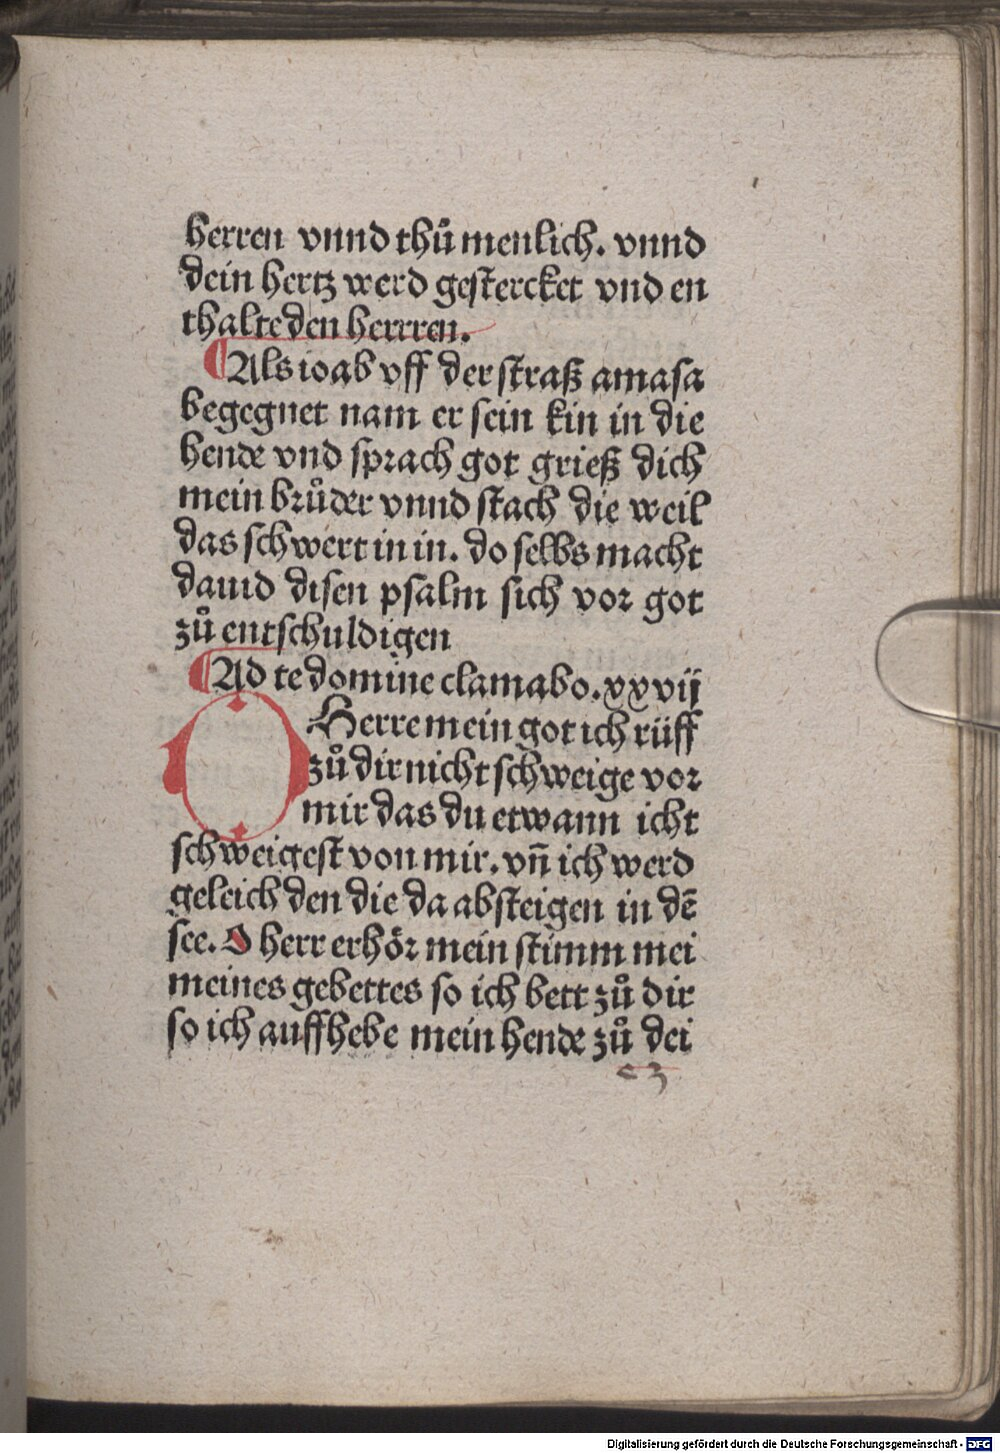 herren vnnd thuͦ menlich. vnnd
dein hertz werd gestercket vnd en
thalte den herrren.
Als ioab vff der straß amasa
begegnet nam er sein kin in die
hende vnd sprach got grieß dich
mein bruͦder vnnd stach die weil
das schwert in in. do selbs macht
dauid disen psalm sich vor got
zuͦ entschuldigen
Ad te domine clamabo. xxvij
O Herre mein got ich rüff
zuͦ dir nicht schweige vor
mir das du etwann icht
schweigest von mir. vn̄ ich werd
geleich den die da absteigen in dē
see. O herr erhör mein stimm mei
meines gebettes so ich bett zuͦ dir
so ich auffhebe mein hende zuͦ dei
c3
Digitalisierung gefördert durch die Deutsche Forschungsgemeinschaft - DFG